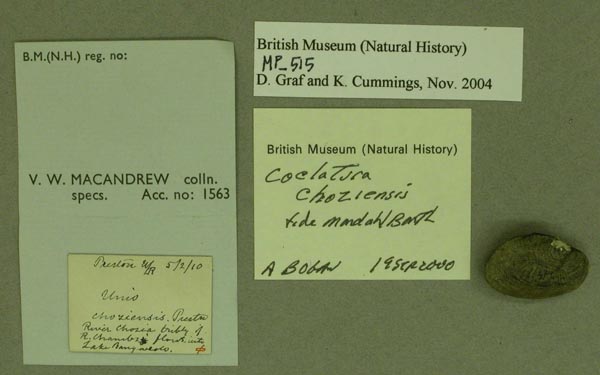 B.M.(N.H.) reg. no:
V. W. MACANDREW colln.
specs. Acc. no: 1563
Preston 5/2/10
Unio
choziensis. Preston
River Chozia tribty of
R. Chambezi flows into
Lake Bangweolo.
British Museum (Natural History)
MP_515
D. Graf and K. Cummings, Nov. 2004
British Museum (Natural History)
Coelatura
choziensis
fide Mandahl Barth
A BOGAN 19 SEP 2000